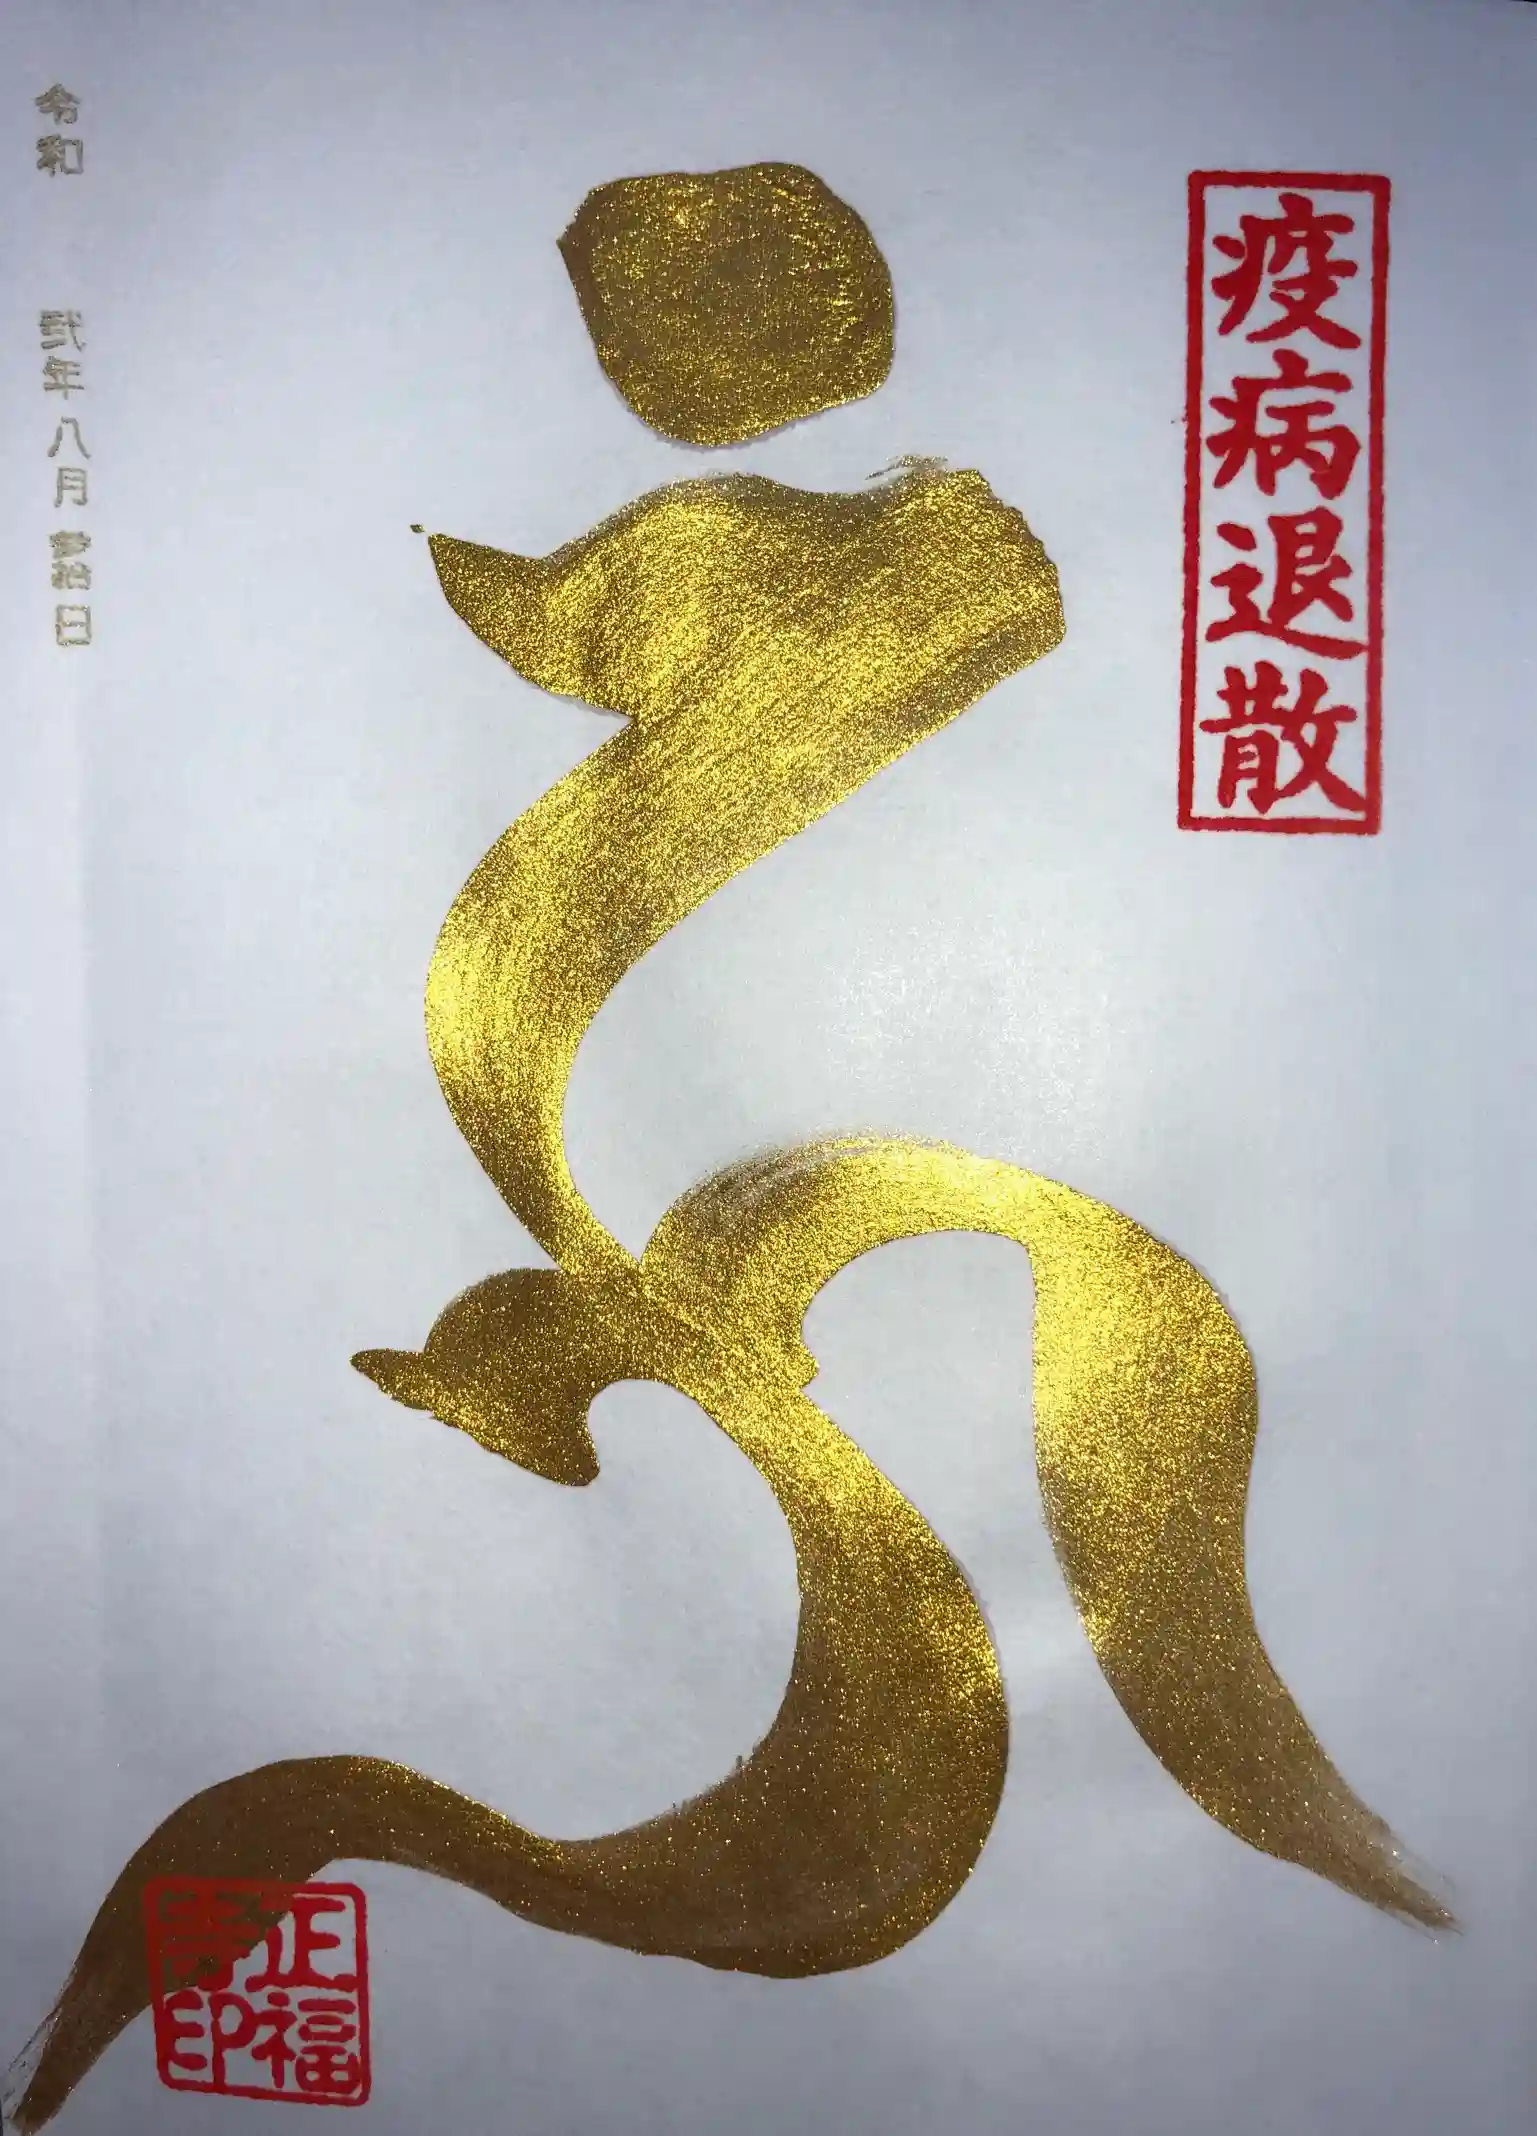 疫病退散
𑖥𑖿𑖨𑖳𑖽
令和 弐年八月参拾日
正福寺印